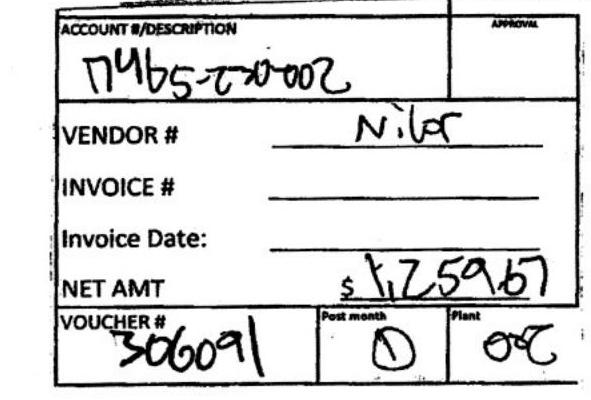 ACCOUNT #/DESCRIPTION APPROVAL
17465-230-002
VENDOR # Nilor
INVOICE #
Invoice Date:
NET AMT $ 1,259.67
VOUCHER # Post month Plant
306091 1 002